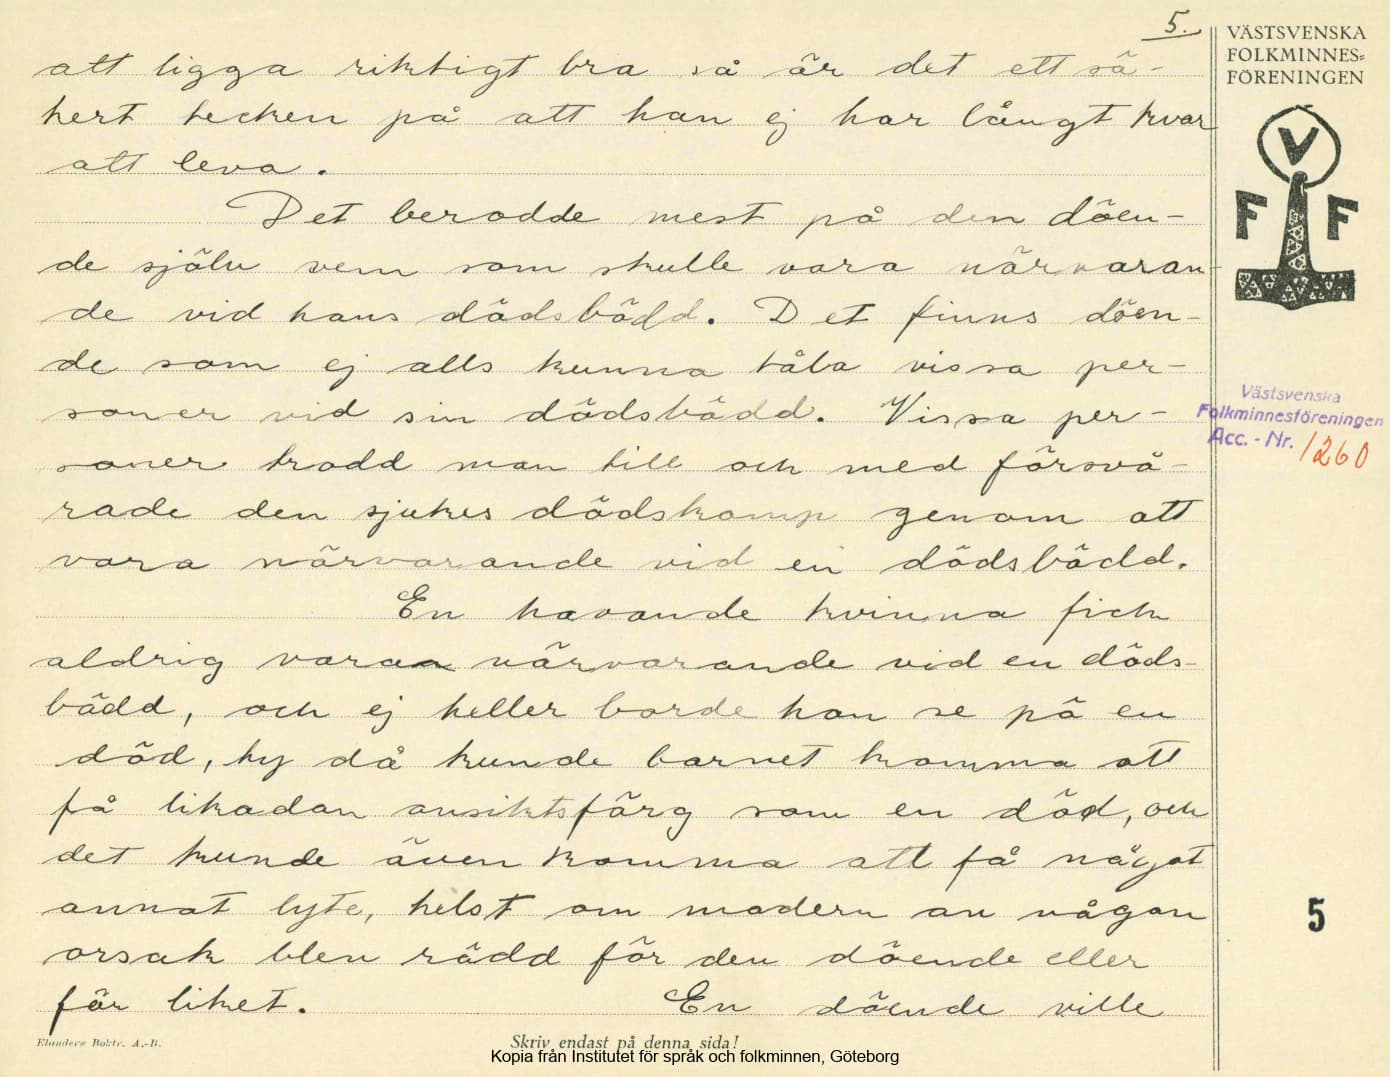 5.
VÄSTSVENSKA
FOLKMINNES=
FÖRENINGEN
V
F F
Västsvenska
Folkminnesföreningen
Acc. - Nr. 1260
att ligga riktigt bra så är det ett sä-
kert tecken på att han ej har långt kvar
att leva.
Det berodde mest på den döen-
de själv vem som skulle vara närvaran-
de vid hans dödsbädd. Det finns döen-
de som ej alls kunna tåla vissa per-
soner vid sin dödsbädd. Vissa per-
soner trodd man till och med försvå-
rade den sjukes dödskamp genom att
vara närvarande vid en dödsbädd.
En havande kvinna fick
aldrig vara närvarande vid en döds-
bädd, och ej heller borde hon se på en
död, ty då kunde barnet komma att
få likadan ansiktsfärg som en död, och
det kunde även komma att få något
annat lyte, helst om modern av någon
orsak blev rädd för den döende eller
för liket. En döende ville
5
Elanders Boktr. A.-B.
Skriv endast på denna sida!
Kopia från Institutet för språk och folkminnen, Göteborg